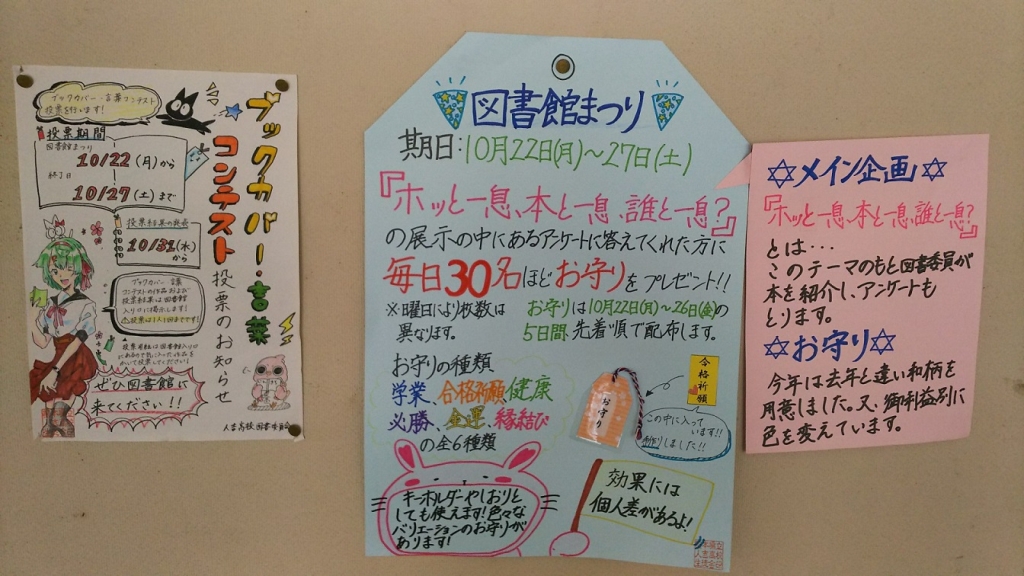 ブックカバー・言葉
コンテスト
投票のお知らせ
ブックカバー・言葉コンテスト
投票を行います!
投票期間
図書館まつり
10/22(月)から
終了日
10/27(土)まで
投票結果の発表
10/31(水)
から
ブックカバー・言葉
コンテストの作品および
投票結果は図書館
入り口に掲示します!
投票は1人1回までです!
ぜひ図書館に
来てください!!
人吉高校図書委員会
図書館まつり
期日:10月22日(月)~27日(土)
『ホッと一息、本と一息、誰と一息?』
の展示の中にあるアンケートに答えてくれた方に
毎日30名ほどお守りをプレゼント!!
※曜日により枚数は
異なります。
お守りは10月22日(月)~26日(金)の
5日間、先着順で配布します。
お守りの種類
学業、合格祈願、健康
必勝、金運、縁結び
の全6種類
合格祈願
お守り
この中に入って
います!!
手作りしました!!
キーホルダーやしおりと
しても使えます!色々な
バリエーションのお守りが
あります!
効果には
個人差があるよ!
メイン企画
『ホッと一息、本と一息、誰と一息?』
とは…
このテーマのもと図書委員が
本を紹介し、アンケートも
とります。
お守り
今年は去年と違い和柄を
用意しました。又、御利益別に
色を変えています。